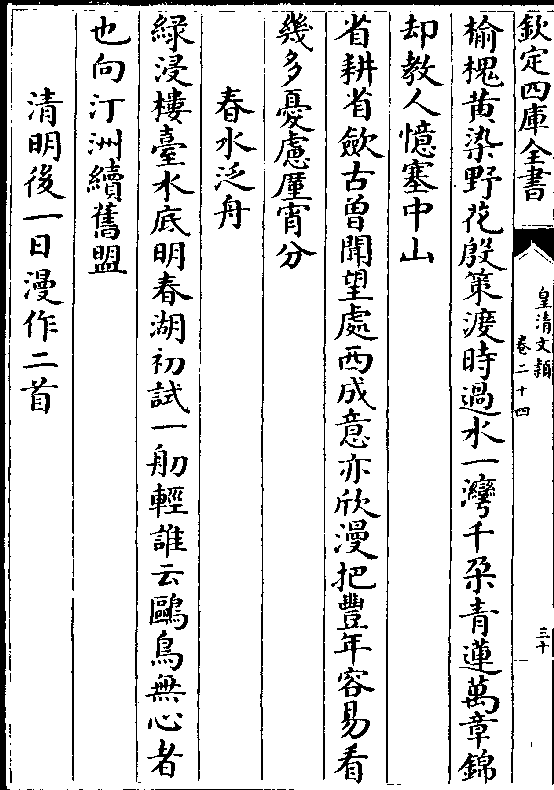 欽定四庫全書
皇清文頴
卷二十四
三十
榆槐黄染野花殷策渡時過水一灣千朶青蓮萬章錦
却教人憶塞中山
省耕省斂古曽聞望處西成意亦欣漫把豐年容易看
幾多憂慮厪宵分
春水泛舟
緑浸樓臺水底明春湖初試一舠輕誰云鷗鳥無心者
也向汀洲續舊盟
清明後一日漫作二首